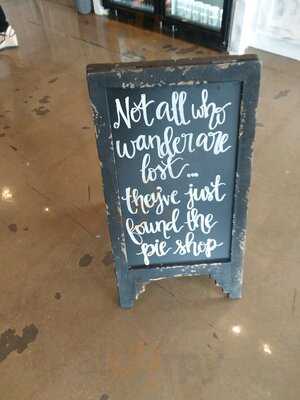 Not all who
wander are
lost...
they've just
found the
pie shop